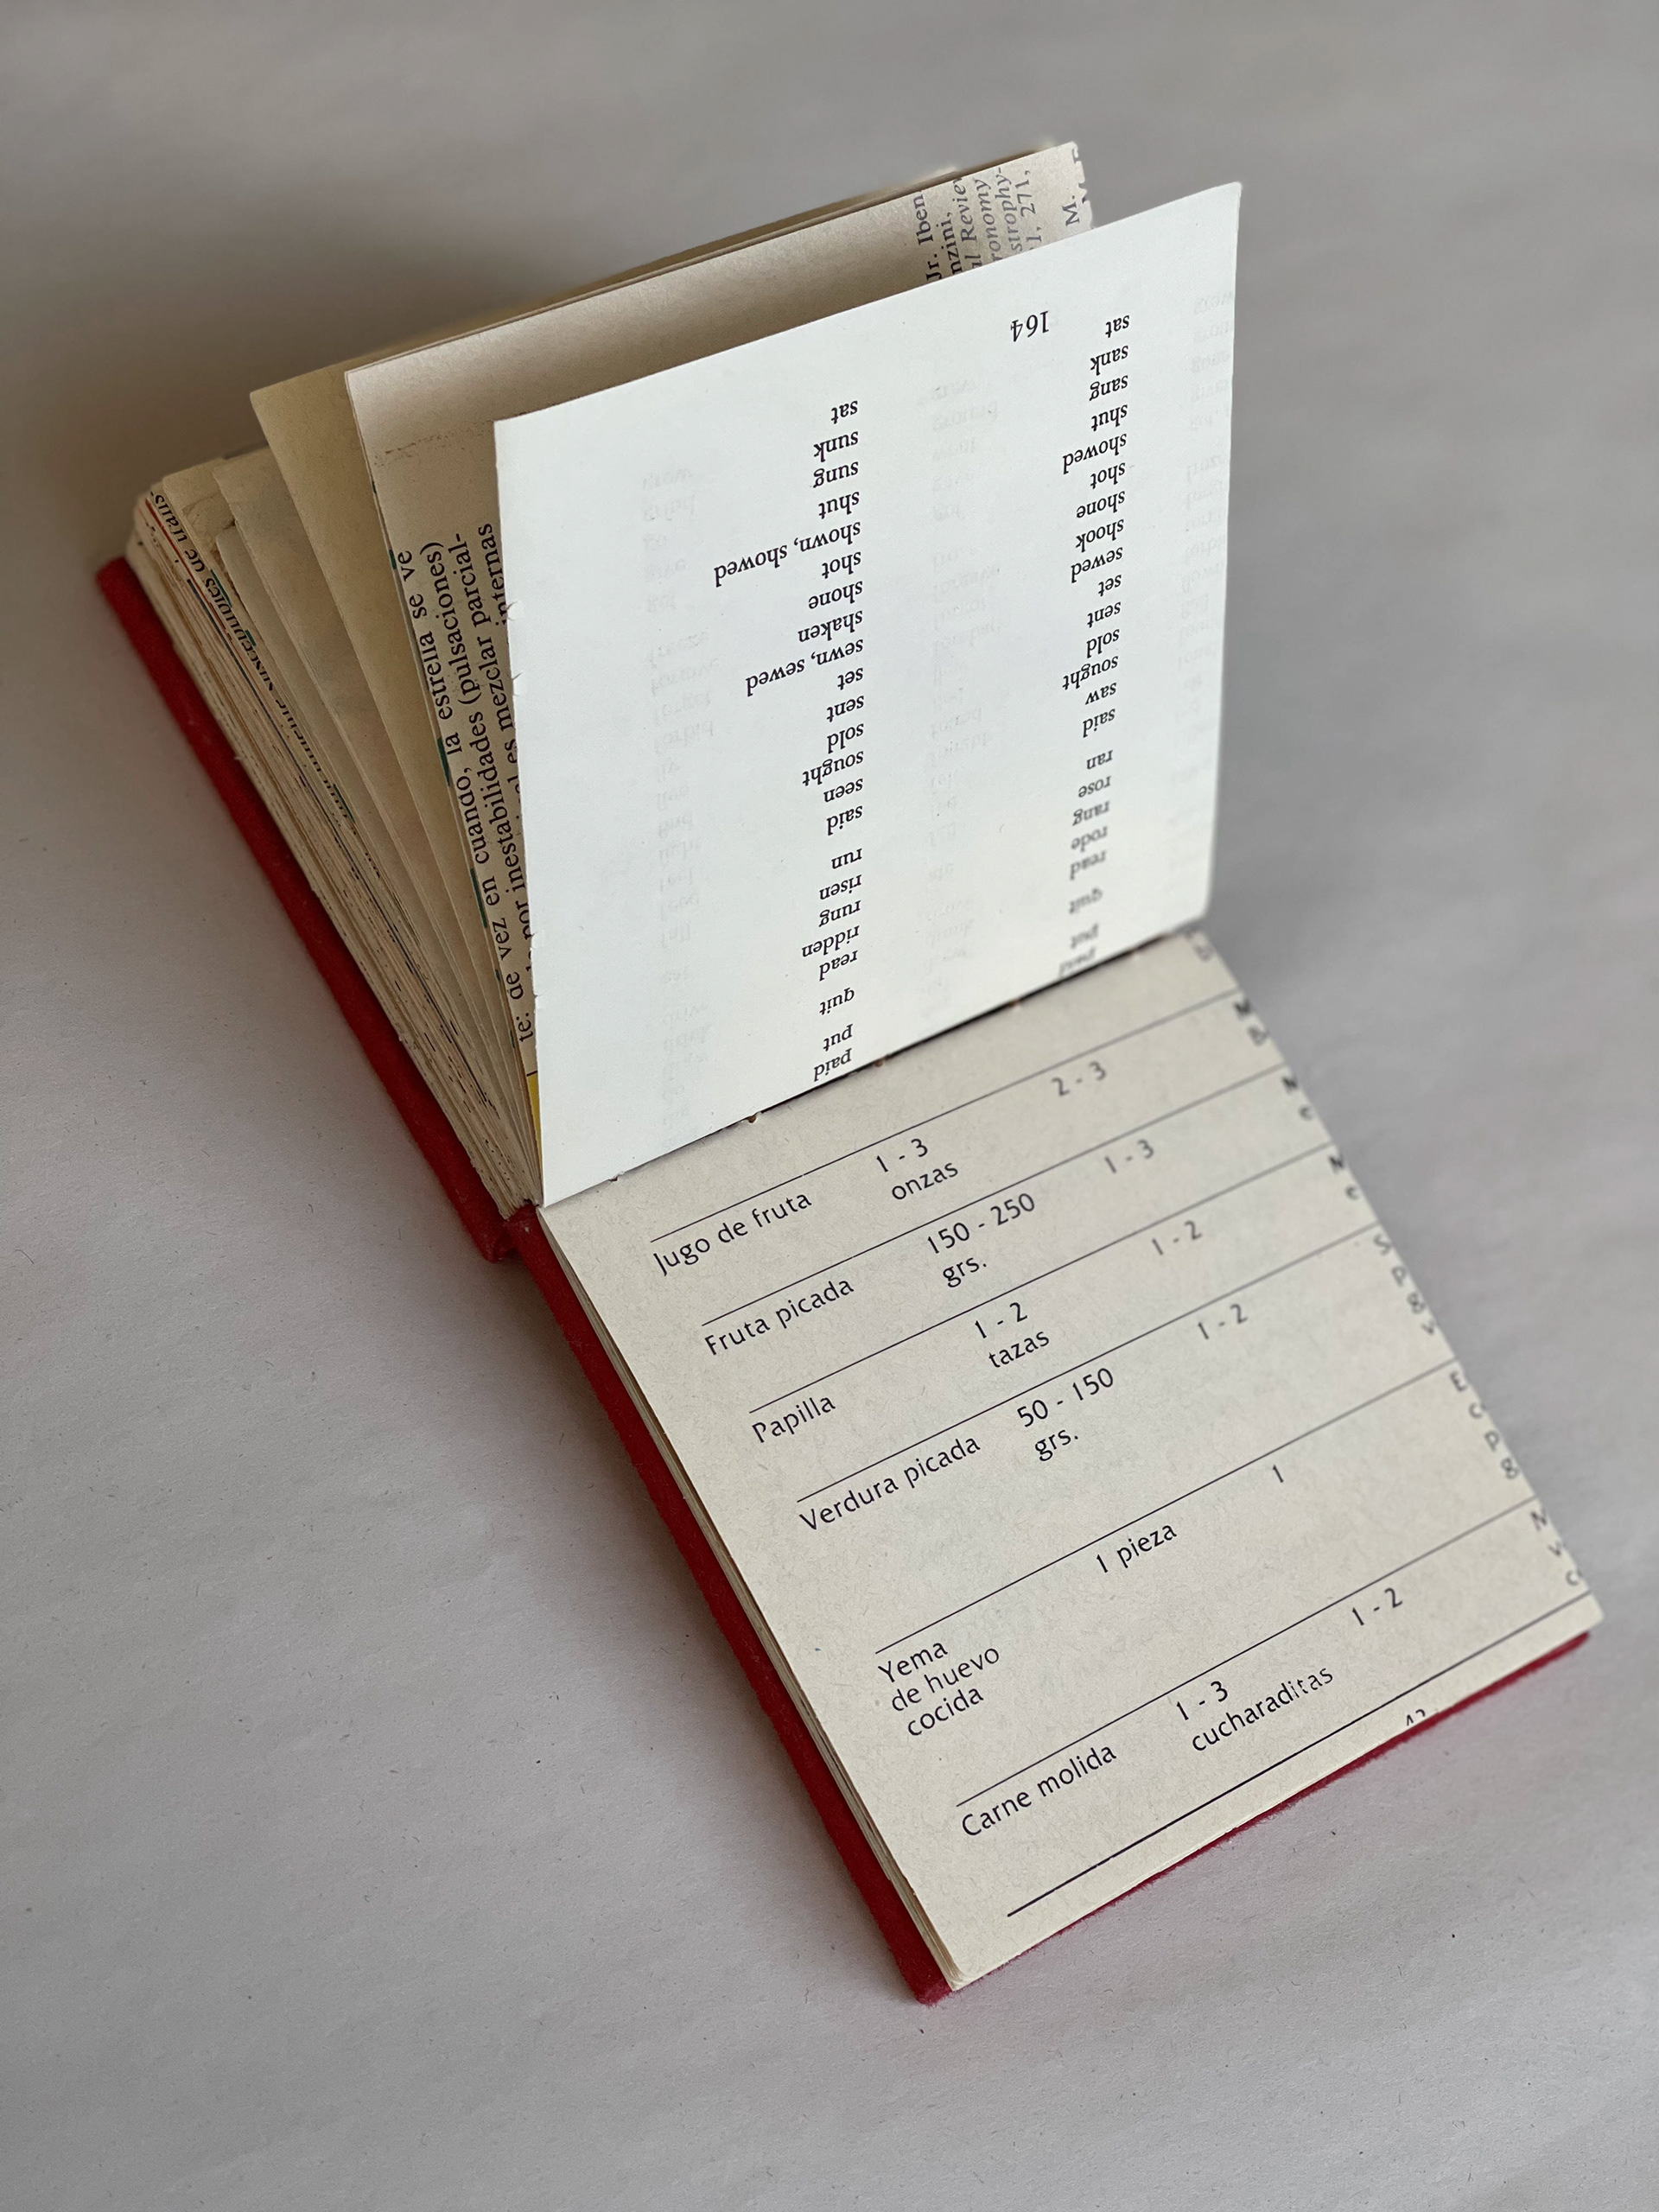 te: de vez en cuando, la estrella se ve
por inestabilidades (pulsaciones)
es mezclar parcial-
internas
Jr. Iben
nzini,
al Review
ronomy
strophy-
271,
M.
paid paid
put put
quit quit
read read
rode ridden
rang rung
rose risen
ran run
said said
saw seen
sought sought
sold sold
sent sent
set set
sewed sewn, sewed
shook shaken
shone shone
shot shot
showed shown, showed
shut shut
sang sung
sank sunk
sat sat
164
Jugo de fruta 1 - 3 2 - 3
onzas
Fruta picada 150 - 250 1 - 3
grs.
Papilla 1 - 2 1 - 2
tazas
Verdura picada 50 - 150 1 - 2
grs.
Yema 1 pieza 1
de huevo
cocida
Carne molida 1 - 3 1 - 2
cucharaditas